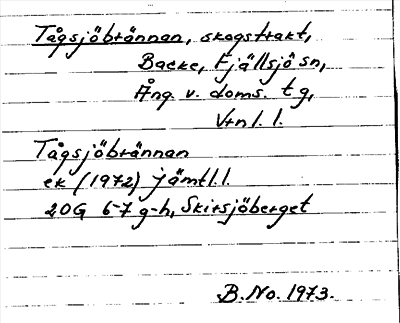 Tågsjöbrännan, skogstrakt,
Backe, Fjällsjö sn,
Ång. v. doms. tg,
Vrnl. l.
Tågsjöbrännan
ek (1972) jämtl.l.
20G 6-7 g-h, Skirsjöberget
B.No. 1973.